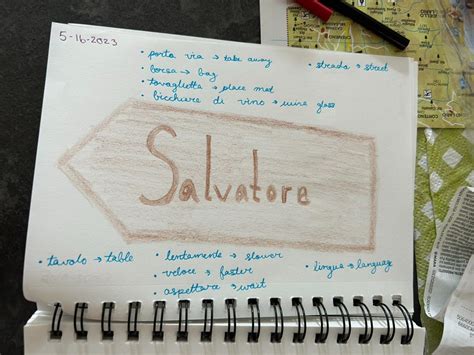 5-16-2023
• porta via → take away
• strada → street
• borsa → bag
• tovaglietta → place mat
• bicchiere di vino → wine glass
Salvatore
• tavolo → table
• lentamente → slower
• lingua → language
• veloce → faster
• aspettare → wait